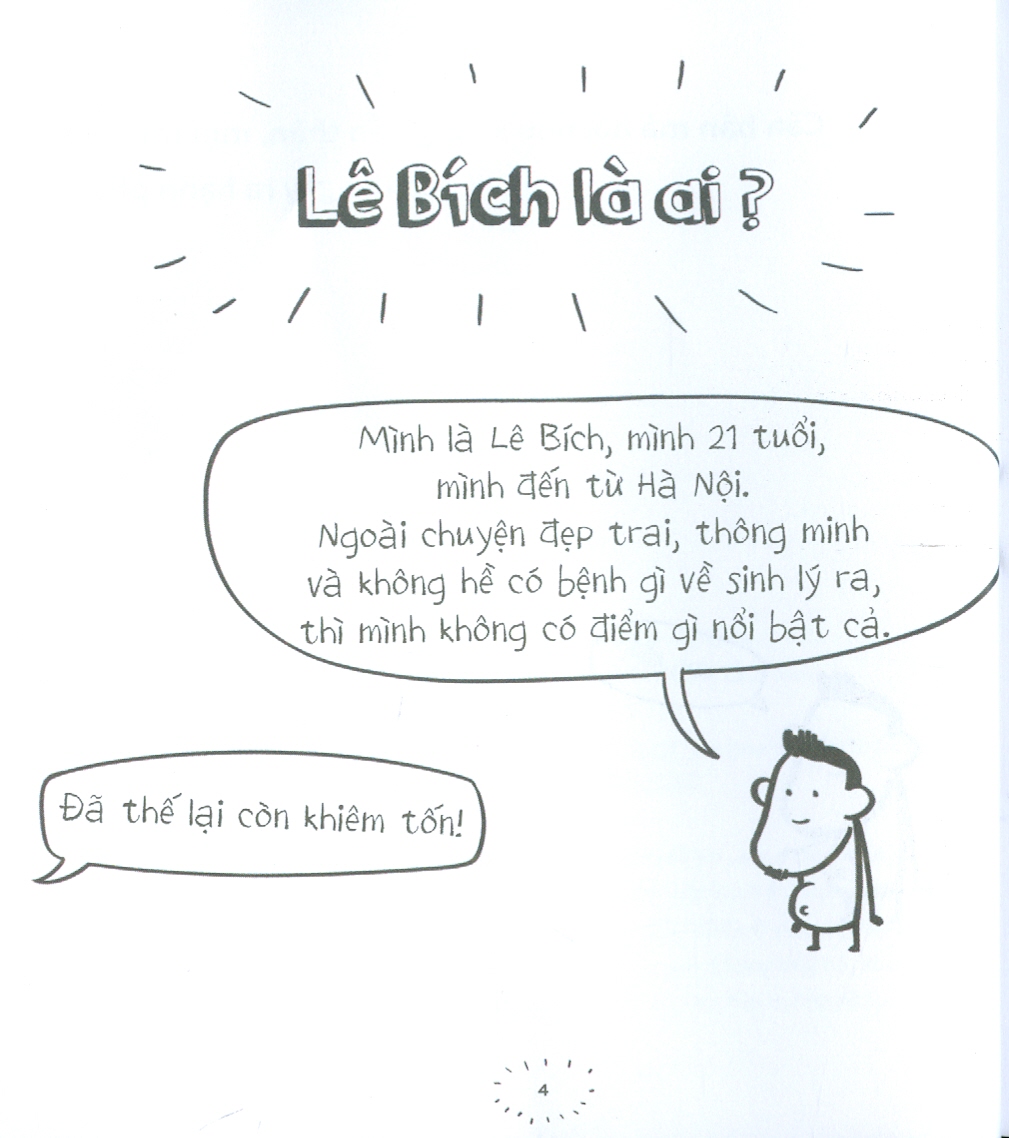 Lê Bích là ai ?
Mình là Lê Bích, mình 21 tuổi,
mình đến từ Hà Nội.
Ngoài chuyện đẹp trai, thông minh
và không hề có bệnh gì về sinh lý ra,
thì mình không có điểm gì nổi bật cả.
Đã thế lại còn khiêm tốn!
4